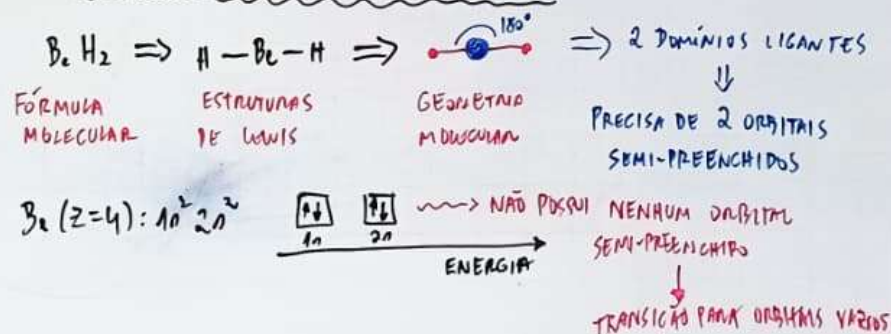 BeH2 => H—Be—H => 180° => 2 DOMÍNIOS LIGANTES
FÓRMULA MOLECULAR
ESTRUTURAS DE LEWIS
GEOMETRIA MOLECULAR
PRECISA DE 2 ORBITAIS
SEMI-PREENCHIDOS
Be (Z=4): 1s² 2s² ⇅ ⇅ ~~> NÃO POSSUI NENHUM ORBITAL
SEMI-PREENCHIDO
1s 2s
ENERGIA
TRANSIÇÃO PARA ORBITAIS VAZIOS